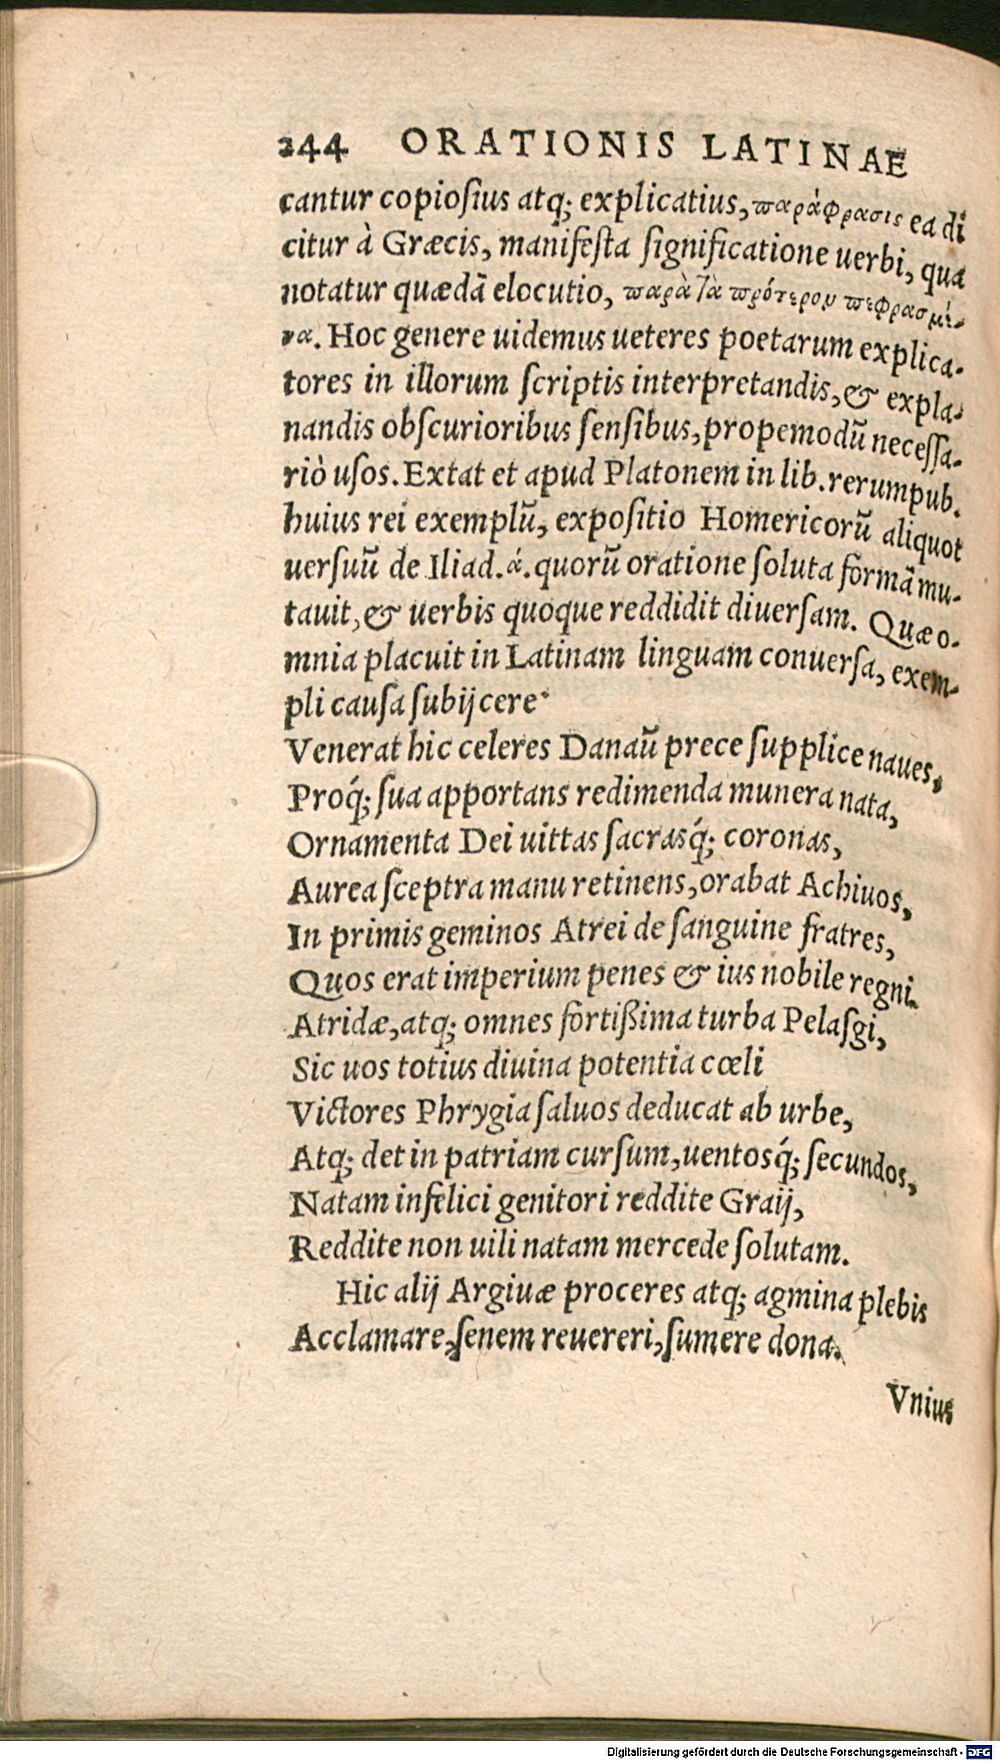 244 ORATIONIS LATINAE
cantur copiosius atq; explicatius, παράφρασις ea di
citur à Græcis, manifesta significatione uerbi, qua
notatur quædā elocutio, παρὰ τὰ πρότερον πεφρασμέ-
να. Hoc genere uidemus ueteres poetarum explica-
tores in illorum scriptis interpretandis, & expla-
nandis obscurioribus sensibus, propemodū necessa-
riò usos. Extat et apud Platonem in lib. rerumpub.
huius rei exemplū, expositio Homericorū aliquot
uersuū de Iliad. ά. quorū oratione soluta formā mu-
tauit, & uerbis quoque reddidit diuersam. Quæ o-
mnia placuit in Latinam linguam conuersa, exem-
pli causa subijcere.
Venerat hic celeres Danaū prece supplice naues,
Proq́; sua apportans redimenda munera nata,
Ornamenta Dei uittas sacrasq́; coronas,
Aurea sceptra manu retinens, orabat Achiuos,
In primis geminos Atrei de sanguine fratres,
Quos erat imperium penes & ius nobile regni.
Atridæ, atq; omnes fortißima turba Pelasgi,
Sic uos totius diuina potentia cœli
Victores Phrygia saluos deducat ab urbe,
Atq; det in patriam cursum, uentosq́; secundos,
Natam infelici genitori reddite Graij,
Reddite non uili natam mercede solutam.
Hic alij Argiuæ proceres atq; agmina plebis
Acclamare, senem reuereri, sumere dona.
Vnius
Digitalisierung gefördert durch die Deutsche Forschungsgemeinschaft - DFG